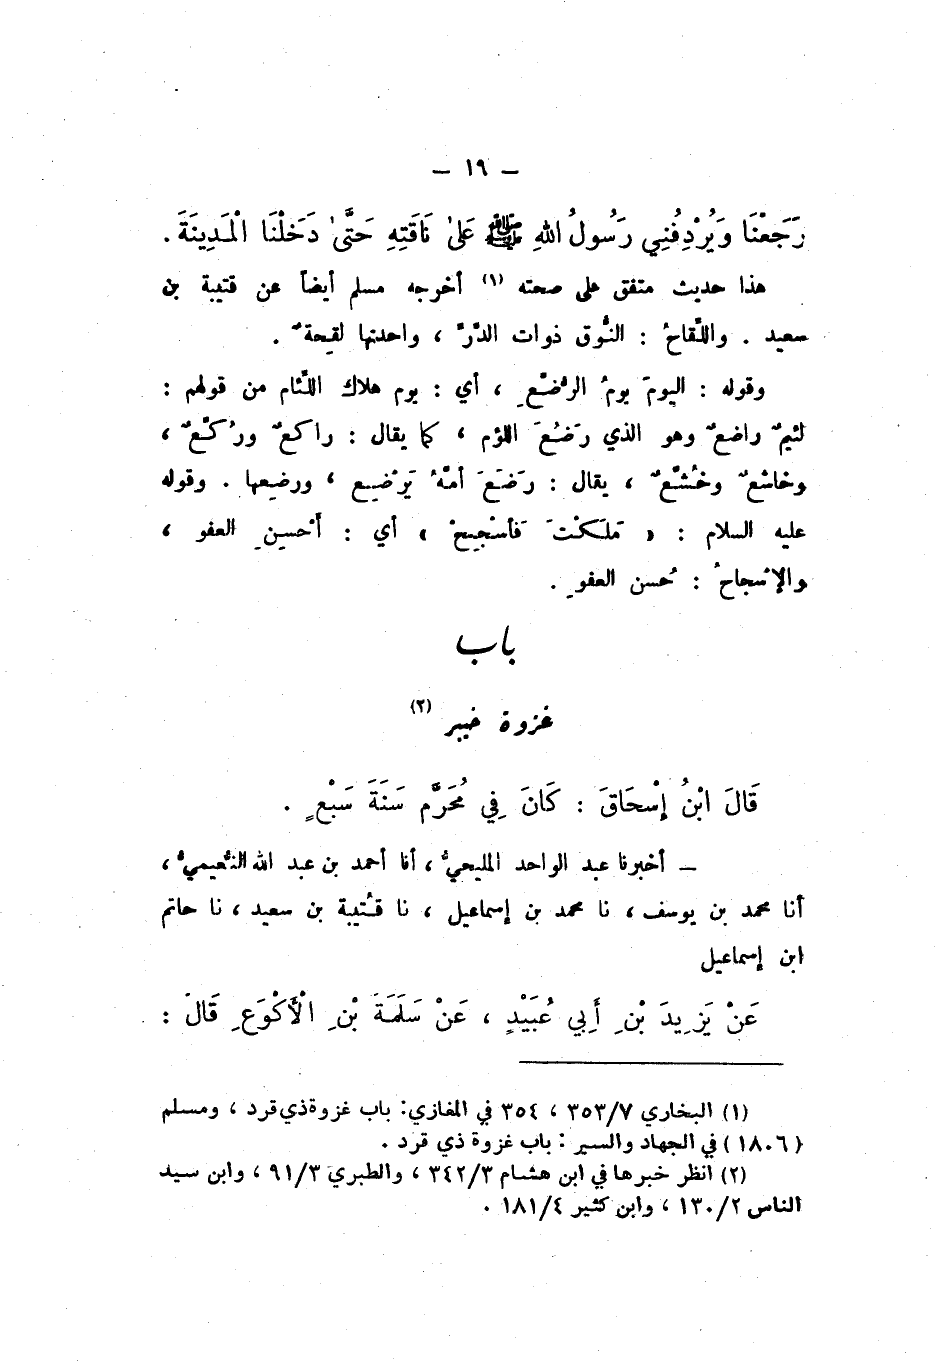 — ١٩ —
رَجَعْنَا وَيُرْدِفُنِي رَسُولُ اللهِ ﷺ عَلىٰ نَاقَتِهِ حَتَّىٰ دَخَلْنَا الْمَدِينَةَ .
هذا حديث متفق على صحته (١) أخرجه مسلم أيضاً عن قتيبة بن
سعيد . واللِّقاحُ : النُّوق ذوات الدَّرِّ ، واحدتها لقحةٌ .
وقوله : اليومَ يومُ الرُّضَّعِ ، أي : يوم هلاك اللِّئام من قولهم :
لئيمٌ راضعٌ وهو الذي رَضُعَ اللؤم ، كما يقال : راكعٌ ورُكَّعٌ ،
وخاشعٌ وخُشَّعٌ ، يقال : رَضَعَ أمَّهُ يَرْضِع ، ورضِعها . وقوله
عليه السلام : « مَلَكْتَ فَأَسْجِحْ » أي : أَحْسِنِ العفو ،
والإسْجاحُ : حُسن العفوِ .
باب
غزوة خيبر (٢)
قَالَ ابْنُ إِسْحَاقَ : كَانَ فِي مُحَرَّم سَنَةَ سَبْعٍ .
— أخبرنا عبد الواحد المليحيُّ ، أنا أحمد بن عبد الله النُّعيميُّ ،
أنا محمد بن يوسف ، نا محمد بن إسماعيل ، نا قُتيبة بن سعيد ، نا حاتم
ابن إسماعيل
عَنْ يَزِيدَ بْنِ أَبِي عُبَيْدٍ ، عَنْ سَلَمَةَ بْنِ الْأَكْوَعِ قَالَ :
(١) البخاري ٣٥٣/٧ ، ٣٥٤ في المغازي : باب غزوة ذي قرد ، ومسلم
(١٨٠٦) في الجهاد والسير : باب غزوة ذي قرد .
(٢) انظر خبرها في ابن هشام ٣٤٢/٣ ، والطبري ٩١/٣ ، وابن سيد
الناس ١٣٠/٢ ، وابن كثير ١٨١/٤ .